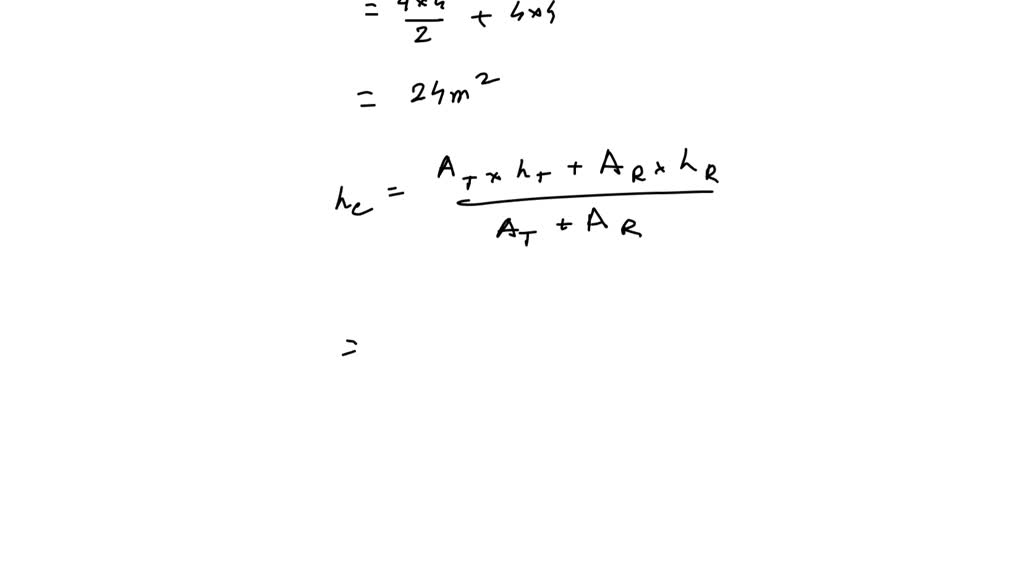 = 4×4/2 + 4×4
= 24m²
h_c = (A_T × h_T + A_R × h_R)/(A_T + A_R)
=